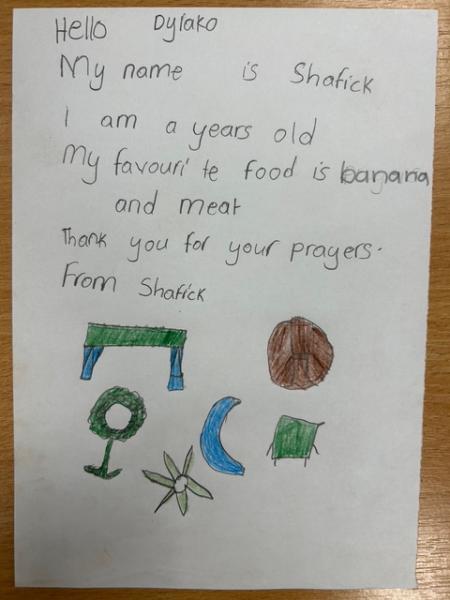 Hello Dylako
My name is Shafick
I am a years old
My favourite food is banana
and meat
Thank you for your prayers.
From Shafick